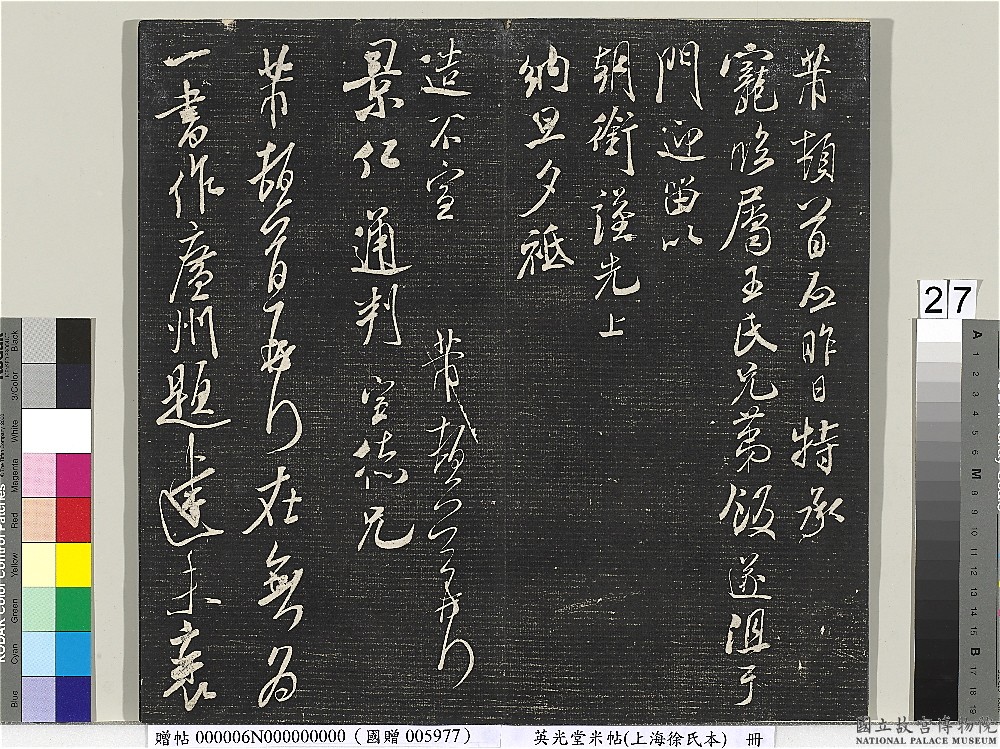 芾頓首启昨日特承
寵臨屬王氏兄弟飯遂沮于
門迎留以
朝銜謹先上
納旦夕祗
造不宣
芾頓首再行
景仁通判宣德兄
芾頓首再行在無為
一書作廣州題達未裹
27
贈帖 000006N000000000 (國贈 005977)
英光堂米帖(上海徐氏本) 冊
國立故宮博物院
NATIONAL PALACE MUSEUM
Black
3/Color
White
Magenta
Red
Yellow
Green
Cyan
Blue
A
1
2
3
4
5
6
M
8
9
10
11
12
13
14
15
B
17
18
19